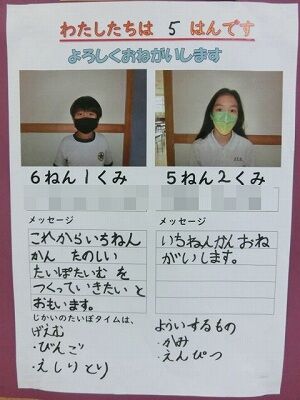 わたしたちは 5 はんです
よろしくおねがいします
6ねん1くみ
5ねん2くみ
メッセージ
これからいちねん
かん たのしい
たいぽたいむ を
つくっていきたい と
おもいます。
メッセージ
いちねんかん おね
がいします。
じかいのたいぽタイムは、
げえむ
・びんご
・えしりとり
よういするもの
・かみ
・えんぴつ